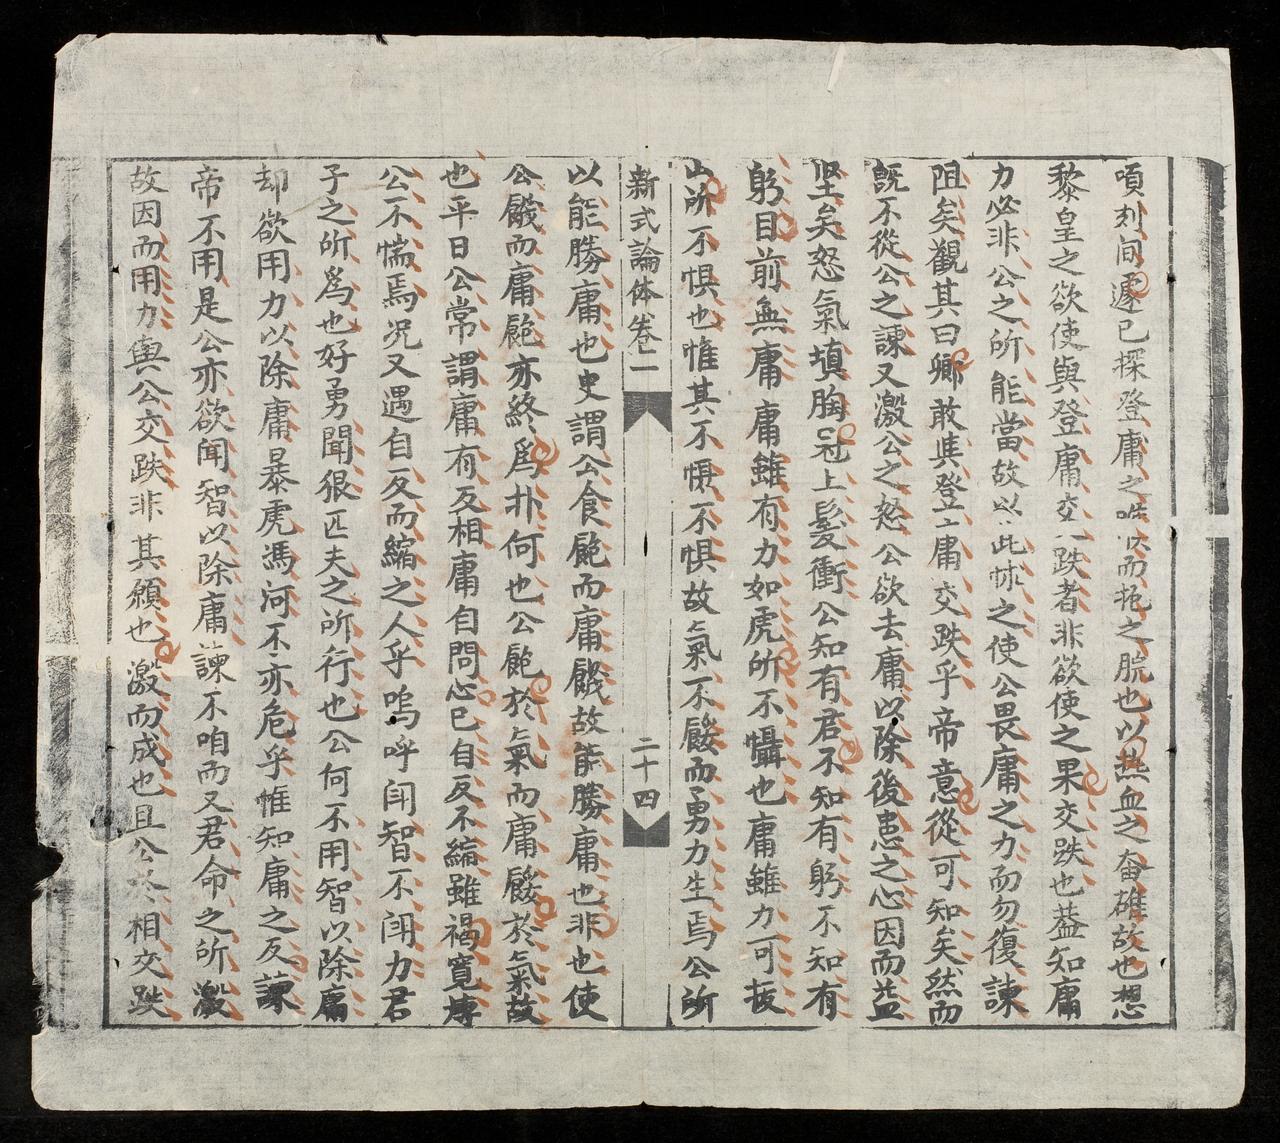 頃刻間遽已探登庸之喉而扼之脘也以熱血之奋雄故也想
黎皇之欲使與登庸交跌者非欲使之果交跌也蓋知庸
力必非公之所能當故以此怵之使公畏庸之力而勿復諫
阻矣觀其曰卿敢與登庸交跌乎帝意從可知矣然而
旣不從公之諫又激公之怒公欲去庸以除後患之心因而益
坚矣怒氣填胸冠上髮衝公知有君不知有躬不知有
躬目前無庸庸雖有力如虎所不懾也庸雖力可拔
山所不惧也惟其不惧不惧故氣不餒而勇力生焉公所
新式論体卷二
二十四
以能勝庸也史謂公食飽而庸饑故能勝庸也非也使
公饑而庸飽亦終爲扑何也公飽於氣而庸餒於氣故
也平日公常謂庸有反相庸自問心已自反不縮雖褐寬博
公不惴焉况又遇自反而縮之人乎嗚呼鬪智不鬪力君
子之所爲也好勇鬪狠匹夫之所行也公何不用智以除庸
却欲用力以除庸暴虎馮河不亦危乎惟知庸之反諫
帝不用是公亦欲鬪智以除庸諫不咱而又君命之所激
故因而用力與公交跌非其願也激而成也且公登相交跌